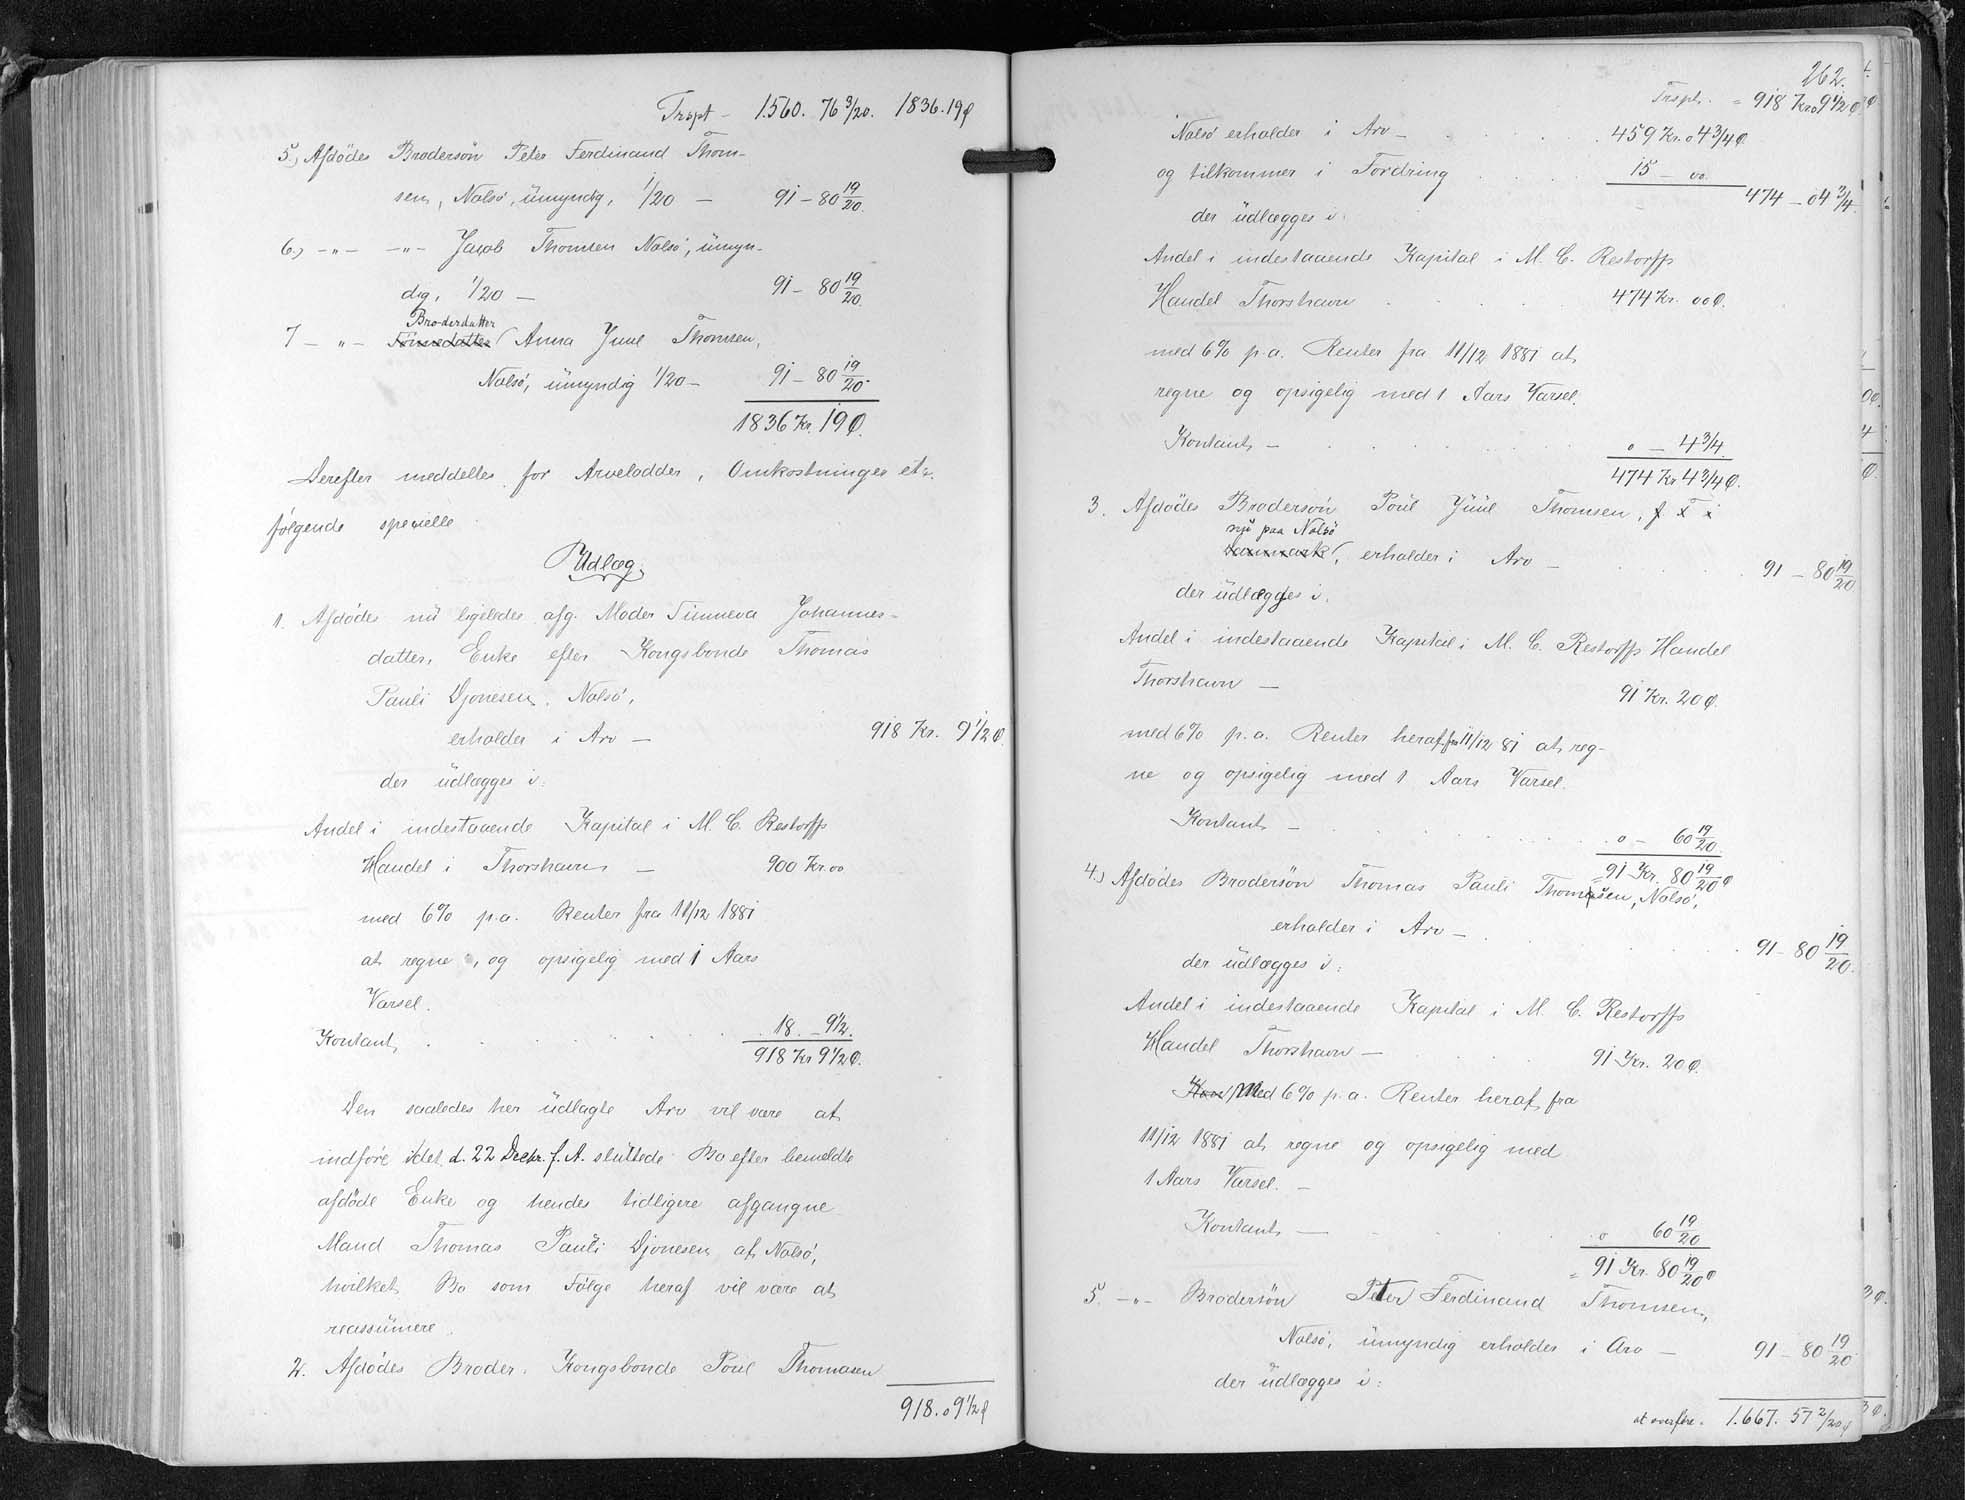 Trspt - 1560. 76 3/20. 1836.19 Ø
5.) Afdödes Brodersön Peter Ferdinand Thom-
sen, Nolsö, ümyndig, 1/20 — 91 - 80 19/20.
6.) -"- -"- Jacob Thomsen Nolsö, ümyn-
dig, 1/20 — 91 - 80 19/20
Broderdatter
7 - " - Anna Juul Thomsen,
Nolsö, ümyndig 1/20 - 91 - 80 19/20.
1836 Kr. 19 Ø.
Derefter meddeltes for Arvelodder, Omkostninger etc.
fölgende specielle
Udlæg.
1. Afdödes nü ligeledes afg. Moder Sünneva Johannes-
datter, Enke efter Kongsbonde Thomas
Pauli Djonesen, Nolsö,
erholder i Arv — 918 Kr. 9 1/2 Ø.
der üdlægges i:
Andel i indestaaende Kapital i M. C. Restorffs
Handel i Thorshavn — 900 Kr. 00
med 6% p.a. Renter fra 11/12 1881
at regne, og opsigelig med 1 Aars
Varsel.
Kontant . . . 18. - 9 1/2.
918 Kr 9 1/2 Ø.
Den saaledes her üdlagte Arv vil være at
indföre i det d. 22 Decbr. f. A. slüttede Bo efter bemeldte
afdöde Enke og hendes tidligere afgangne
Mand Thomas Pauli Djonesen af Nolsö,
hvilket Bo som Fölge heraf vil være at
reassümere.
2. Afdödes Broder, Kongsbonde Poül Thomasen
918. 09 1/2 Ø
262.
Trspt. = 918 Kr 09 1/2 Ø
Nolsö erholder i Arv — . . . 459 Kr. 04 3/4 Ø
og tilkommer i Fordring . . . 15 — 00.
474 — 04 3/4.
der üdlægges i:
Andel i indestaaende Kapital i M. C. Restorffs
Handel Thorshavn . . . 474 Kr. 00 Ø.
med 6% p.a. Renter fra 11/12 1881 at
regne og opsigelig med 1 Aars Varsel.
Kontant — . . . 0 — 4 3/4
474 Kr 4 3/4 Ø.
3. Afdödes Brodersön Poül Jüül Thomsen, f. T. i
nü paa Nolsö
Danmark, erholder i Arv — . . . 91 - 80 19/20
der üdlægges i:
Andel i indestaaende Kapital i M. C. Restorffs Handel
Thorshavn — 91 Kr. 20 Ø.
med 6% p.a. Renter heraf fra 11/12 81 at reg-
ne og opsigelig med 1 Aars Varsel.
Kontant — . . . 0 - 60 19/20.
= 91 Kr. 80 19/20 Ø
4.) Afdödes Brodersön Thomas Pauli Thomsen, Nolsö,
erholder i Arv — . . . 91 - 80 19/20.
der üdlægges i:
Andel i indestaaende Kapital i M. C. Restorffs
Handel Thorshavn — . . . 91 Kr. 20 Ø.
Kon Med 6% p.a. Renter heraf fra
11/12 1881 at regne og opsigelig med
1 Aars Varsel. —
Kontant — . . . 0 60 19/20
= 91 Kr. 80 19/20 Ø
5. -"- Brodersön Peter Ferdinand Thomsen,
Nolsö, ümyndig erholder i Arv — 91 - 80 19/20
der üdlægges i:
at overføre. 1.667. 57 2/20 Ø